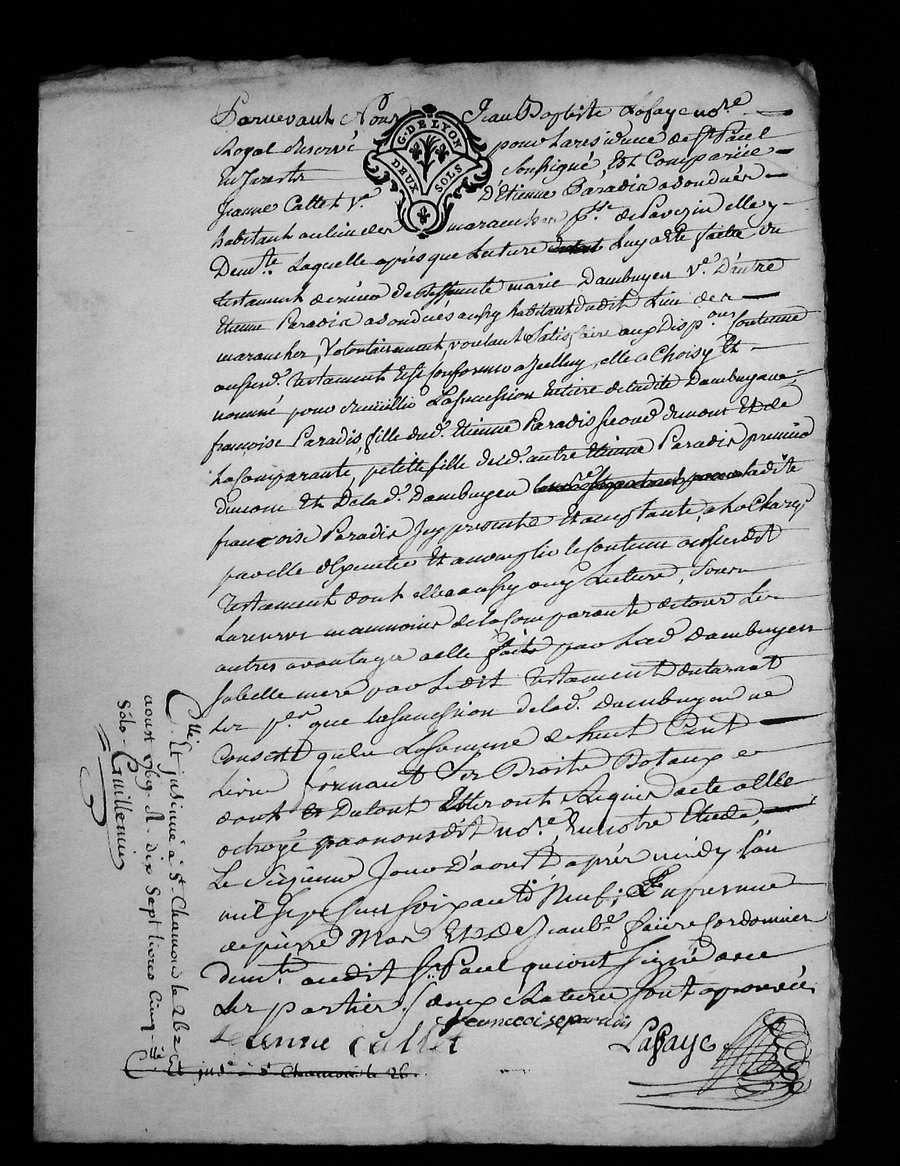 Pardevant Nous Jean Baptiste Lafaye no.re
Royal Reservé pour la residence de St Paul
En Jarestz soussigné, Est Comparüe
Jeanne Callet v.e D'Etienne Paradis adondués
habitant au lieu de maraucher p.sse de Paverin elle y
Dem.te Laquelle après que Lecture luy a eté faitte du
Testament de deffunte marie Dambuyen v.e D'autre
Etienne Paradis adondues aussy habitant dudit Lieu de
maraucher, volontairement, voulant satisfaire aux Disp.ons Contenue
audit Testament Et se conformer a Jcelluy, elle a Choisy Et
nommé pour recüeillir La succession Entiere de ladite Dambuyen
françoise Paradis, fille dud. Etienne Paradis second du nom Et de
La Comparante, petitte fille dud. autre Etienne Paradis premier
du nom Et De la d. Dambuyen ladite
françoise Paradis Jcy presente Et acceptante, a la Charge
par elle d'Executer Et accomplir le Contenu audit
Testament dont elle a aussy ouy Lecture, sous
La reserve neanmoins de la Comparante de tous Les
autres avantages a elle faits par La d. Dambuyen
sa belle mere par Ledit Testament declarant
Les p.es que la succession de la d. Dambuyen ne
Consiste qu'en La somme de huit Cent
Livres formant Ses Droits Dotaux
dont Du tout Elles ont Requis acte a Elle
octroyé par nous dit no.re En notre Etude
Le Jour D'aoust après midy L'an
mil sept Cent soixante Neuf; En presence
de pierre Mas Et de Jean b.te faure Cordonnier
dem.t audit St Paul qui ont signé avec
Les parties. deux ratures sont aprouvées
francoise paradis
Jeanne Callet Lafaye
C.llé Et insinué à St. Chamond le 26
aoust 1769. R. dix Sept livres Cinq
Sols Guillemin
C.llé Et ins.é à St Chamond le 26.
G. DE LYON
DEUX SOLS